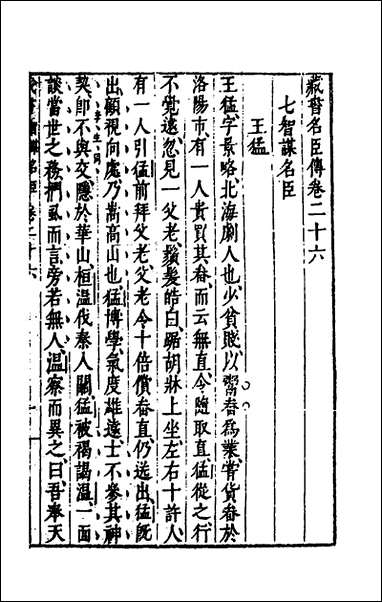 藏書名臣傳卷二十六
七智謀名臣
王猛
王猛字景略北海劇人也少貧賤以鬻畚爲業嘗貨畚於
洛陽市有一人貴買其畚而云無直令隨取直猛從之行
不覺遠忽見一父老鬚髮皓白踞胡牀上坐左右十許人
有一人引猛前拜父老父老令十倍償畚直仍送出猛旣
出顧視向處乃嵩高山也猛博學氣度雄遠士不參其神
契卽不與交隱於華山桓溫伐秦入關猛被褐謁溫一面
談當世之務捫虱而言旁若無人溫察而異之曰吾奉天